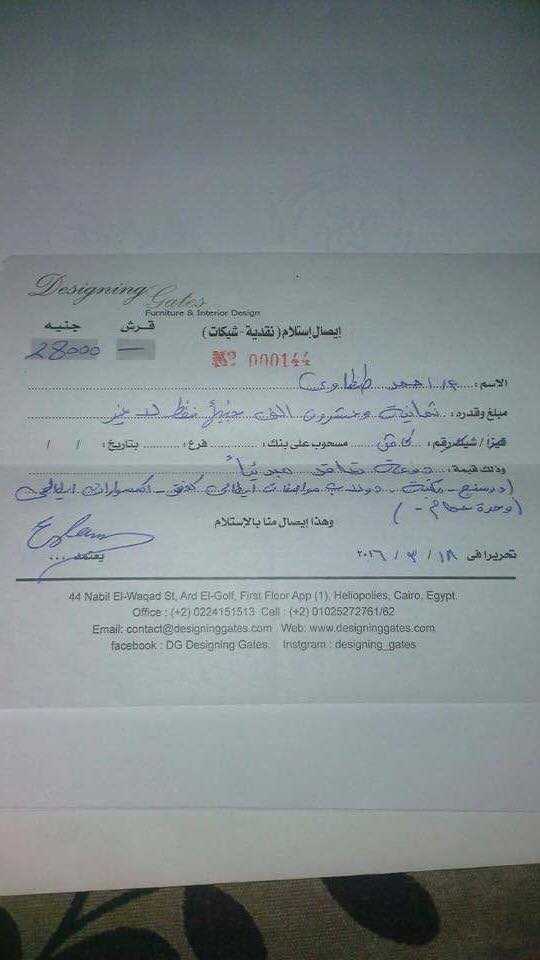 Designing Gates
Furniture & Interior Design
جنيه قرش
28000 —
إيصال إستلام (نقدية - شيكات)
Nº 000144
الاسم : احمد طنطاوى
مبلغ وقدره : ثمانية وعشرون الف جنيهاً فقط لا غير
/ شيك رقم : كاش مسحوب على بنك : فرع : بتاريخ : / /
وذلك قيمة : دفعة تعاقد
(درسنج - مكتبة - دولاب مواصفات ايطالى - اكسسوارات ايطالى
(وحدة حمام -
وهذا إيصال منا بالإستلام
تحريرا فى ١٨ / ٣ / ٢٠١٦
يعتمد ...
44 Nabil El-Waqad St, Ard El-Golf, First Floor App (1), Heliopolies, Cairo, Egypt.
Office : (+2) 0224151513 Cell : (+2) 01025272761/62
Email: contact@designinggates.com Web: www.designinggates.com
facebook : DG Designing Gates. Instgram : designing_gates